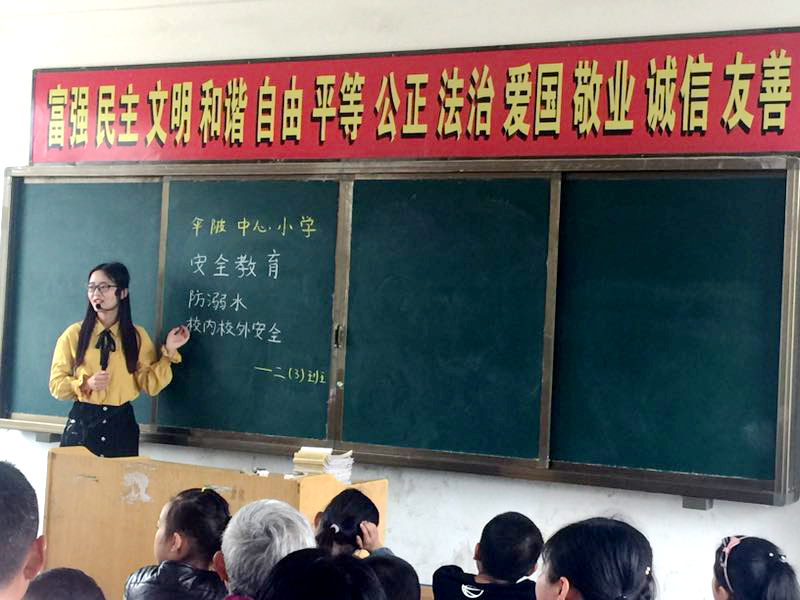 富强 民主 文明 和谐 自由 平等 公正 法治 爱国 敬业 诚信 友善
伞陂 中心小学
安全教育
防溺水
校内校外安全
——二(3)班